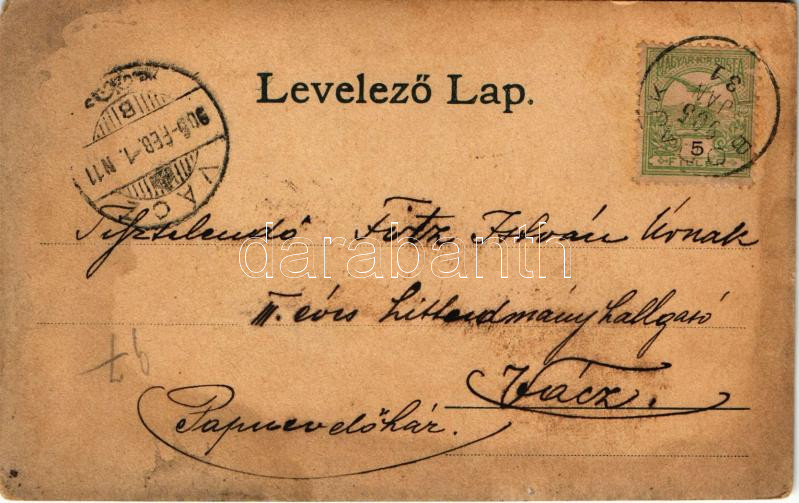 Levelező Lap.
MAGYAR KIR. POSTA
5
905 JAN 31
B
905 FEB. 1. N 11
VÁCZ
B
Tisztelendő Fotz István Úrnak
II. éves hittudományhallgató
Vácz.
Papnevelőház.
97
darabanth